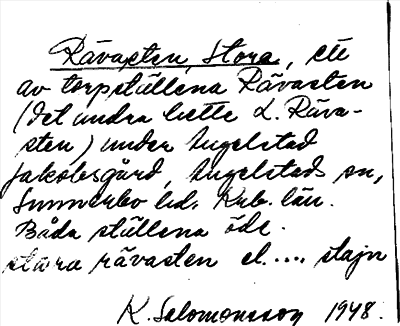 Rävasten, Stora, ett
av torpställena Rävasten
(det andra hette L. Räva-
sten) under Angelstad
Jakobsgård, Angelstads sn,
Sunnerbo hd. Krb. län.
Båda ställena öde.
stora rävasten el. .... stajn
K. Salomonsson 1948.